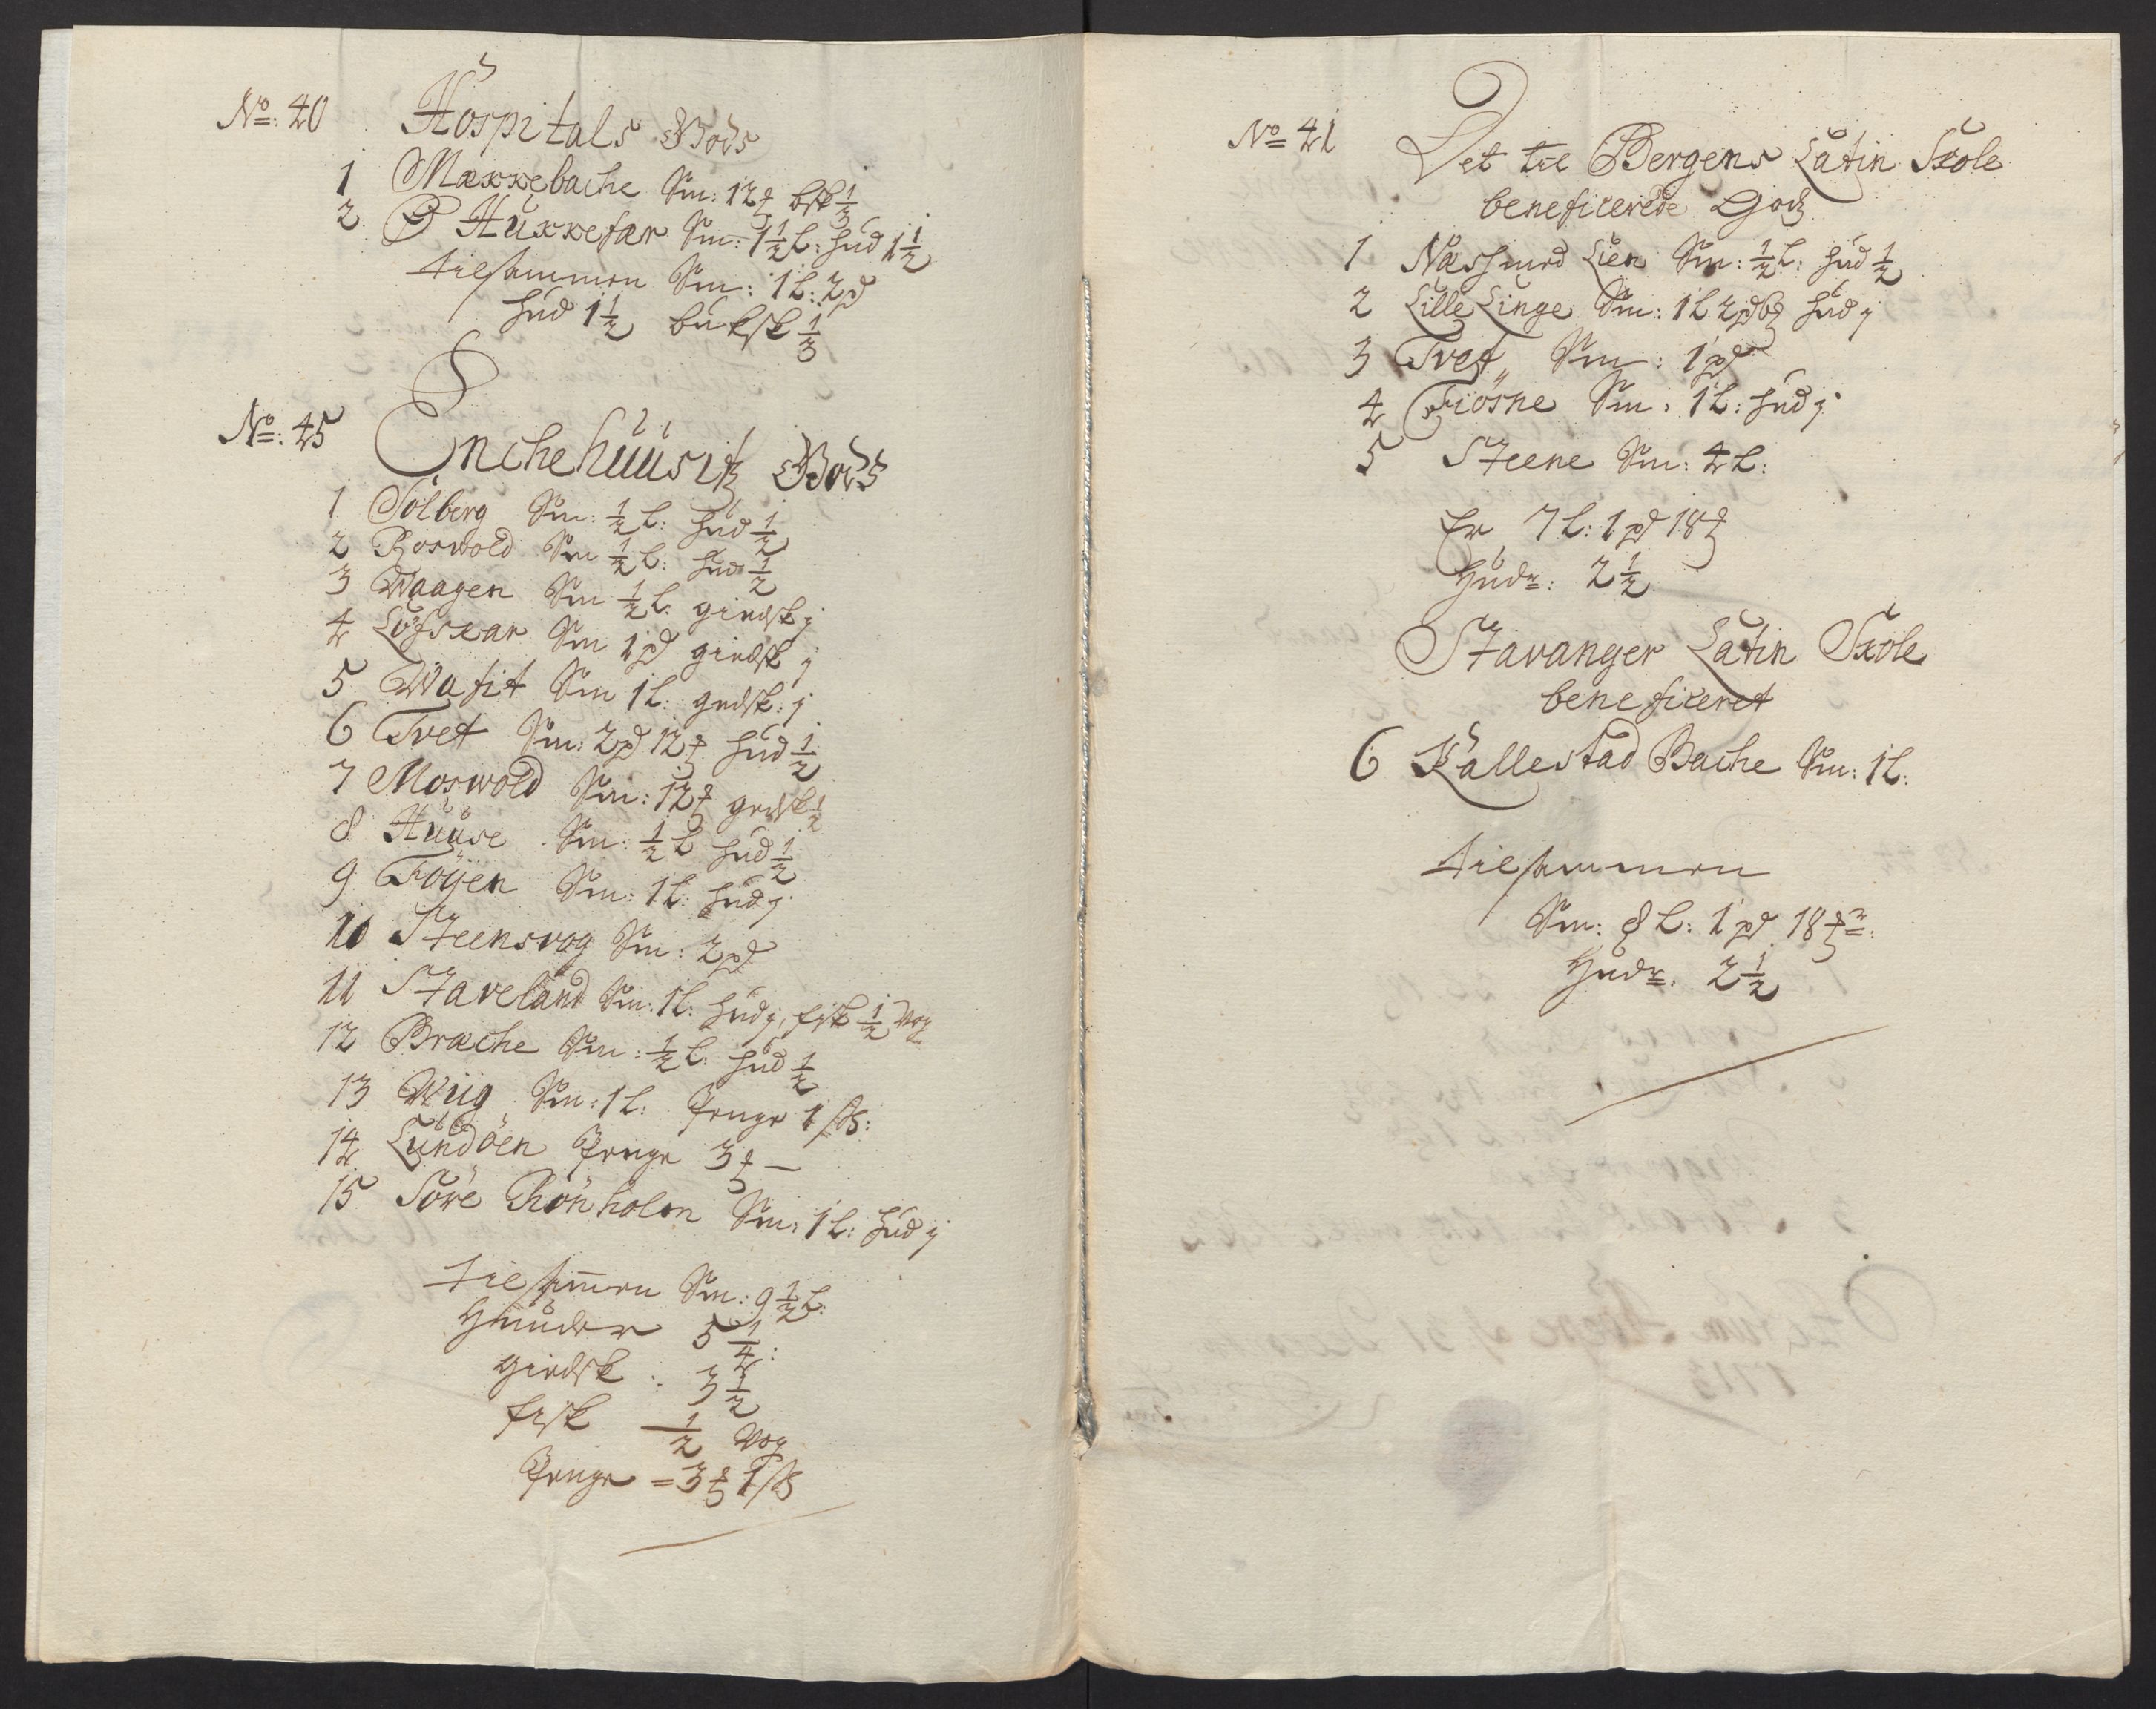 No: 40 Hospitals Gods
1 Mækkebache Sm: 12 ℔ bsk ½
2 Hukkefær Sm: 1½ L: hud 1½
tilsammen Sm: 1 L: 2 pd
hud 1½ buksk ⅓
No: 45 Enchehuusitz Gods
1 Solberg Sm: ½ L: hud ½
2 Roswold Sm ½ L: hud ½
3 Waagen Sm ½ L: giedsk j
4 Lofskar Sm 1 pd giedsk j
5 Watit Sm 1 L: gedsk: j
6 Tvet Sm: 2 pd 12 ℔ hud ½
7 Moswold Sm: 12 ℔ gedsk ½
8 Huuse Sm: ½ L hud ½
9 Foyen Sm: 1 L: hud j
10 Steensvog Sm: 2 pd
11 Staveland Sm: 1 L: hud j, fisk ½ Vog
12 Bræche Sm: ½ L: hud ½
13 Wiig Sm: 1 L: Penge 1 ß:
14 Lundöen Penge 3 ℔ —
15 Söre Rönholm Sm: 1 L: hud j
tilsam̄en Sm: 9½ L:
Huuder 5¼:
giedsk: 3½
fisk ½ Vog
Penge = 3 ℔ 1 ß
No 41 Det til Bergens Latin Skole
beneficerede Godz
1 Næs med Lien Sm: ½ L: hud ½
2 Lille Linge Sm: 1 L 2 pd 6 ℔ hud j
3 Tvet Sm: 1 pd
4 Fiösne Sm: 1 L: hud j
5 Steene Sm: 4 L:
Er 7 L: 1 pd 18 ℔
Hudr: 2½
Stavanger Latin Skole
beneficeret
6 Kallestad Bache Sm: 1 L:
tilsammen
Sm: 8 L: 1 pd 18 ℔r:
Hudr: 2½